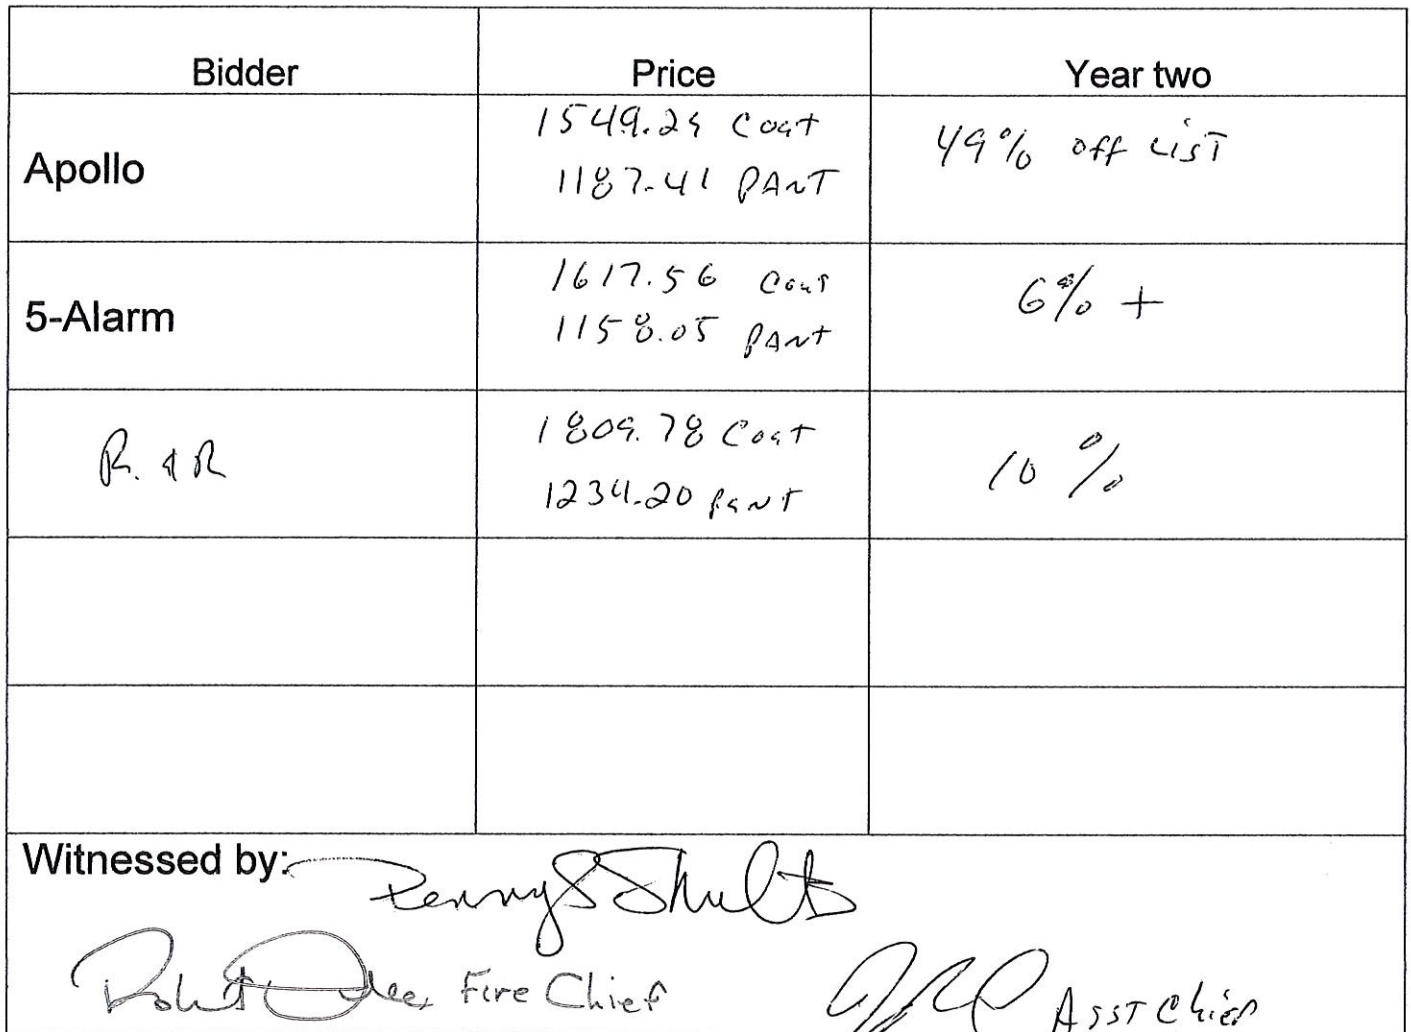 Bidder Price Year two
Apollo
1549.24 Coat
1187.41 PANT
49% off LIST
5-Alarm
1617.56 Coat
1158.05 PANT
6% +
R. & R
1809.78 Coat
1234.20 PANT
10 %
Witnessed by: Penny S Shults
Robert Fire Chief
Asst Chief